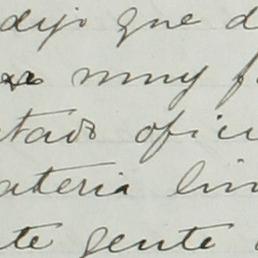 dijo que d
ar muy f
tado ofici
ateria lin
te gente